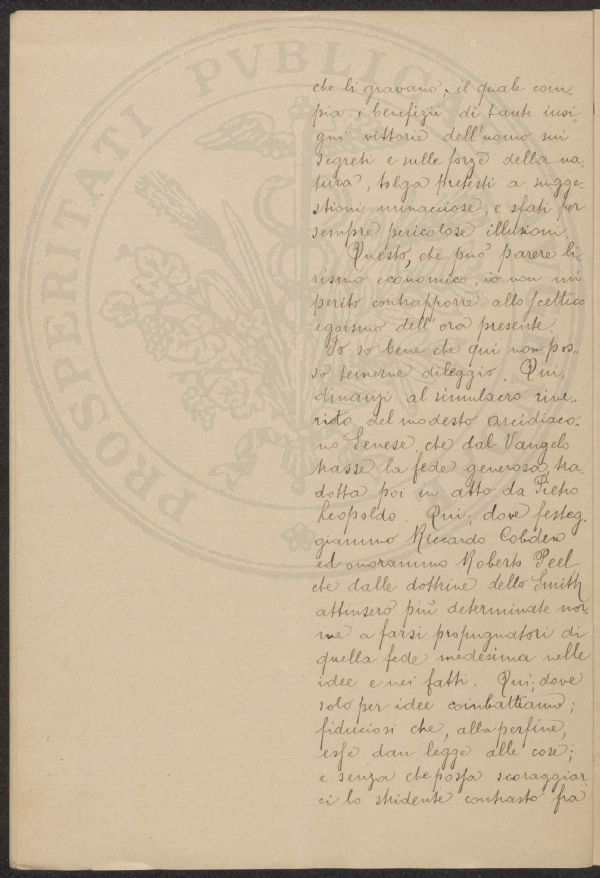 PROSPERITATI PVBLICAE
che li gravano; il quale com-
pia i benefizii di tante insi-
gni vittorie dell'uomo sui
segreti e sulle forze della na-
tura, tolga pretesti a sugge-
stioni minacciose, e sfati per
sempre pericolose illusioni.
Questo, che può parere li-
rismo economico, io non mi
perito contrapporre allo scettico
egoismo dell'ora presente.
Io so bene che qui non pos-
so temerne dileggio. Qui,
dinanzi al simulacro rive-
rito del modesto arcidiaco-
no Senese che dal Vangelo
trasse la fede generosa, tra-
dotta poi in atto da Pietro
Leopoldo. Qui, dove festeg-
giammo Riccardo Cobden
ed onorammo Roberto Peel,
che dalle dottrine dello Smith
attinsero più determinate nor-
me a farsi propugnatori di
quella fede medesima nelle
idee e nei fatti. Qui, dove
solo per idee combattiamo;
fiduciosi che, alla perfine,
esse dan legge alle cose;
e senza che possa scoraggiar
ci lo stridente contrasto fra